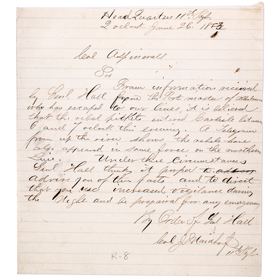 Head Quarters 11th
2 o clock June 26. 1863
Col Aspinwall
Sir
From information received
by Genl Hall from the Post master of
who has escaped to our lines it is believed
that the rebel pickets entered Carlisle between
6 and 7 o'clock this evening. A telegram
from up the river shows the rebels have
also appeared in some force on the northern
Line. Under these circumstances
Genl Hall thinks it proper to
advise you of these facts and to direct
that you use increased vigilance during
the night and be prepared for any emergency
By Order of Genl Hall
R-8